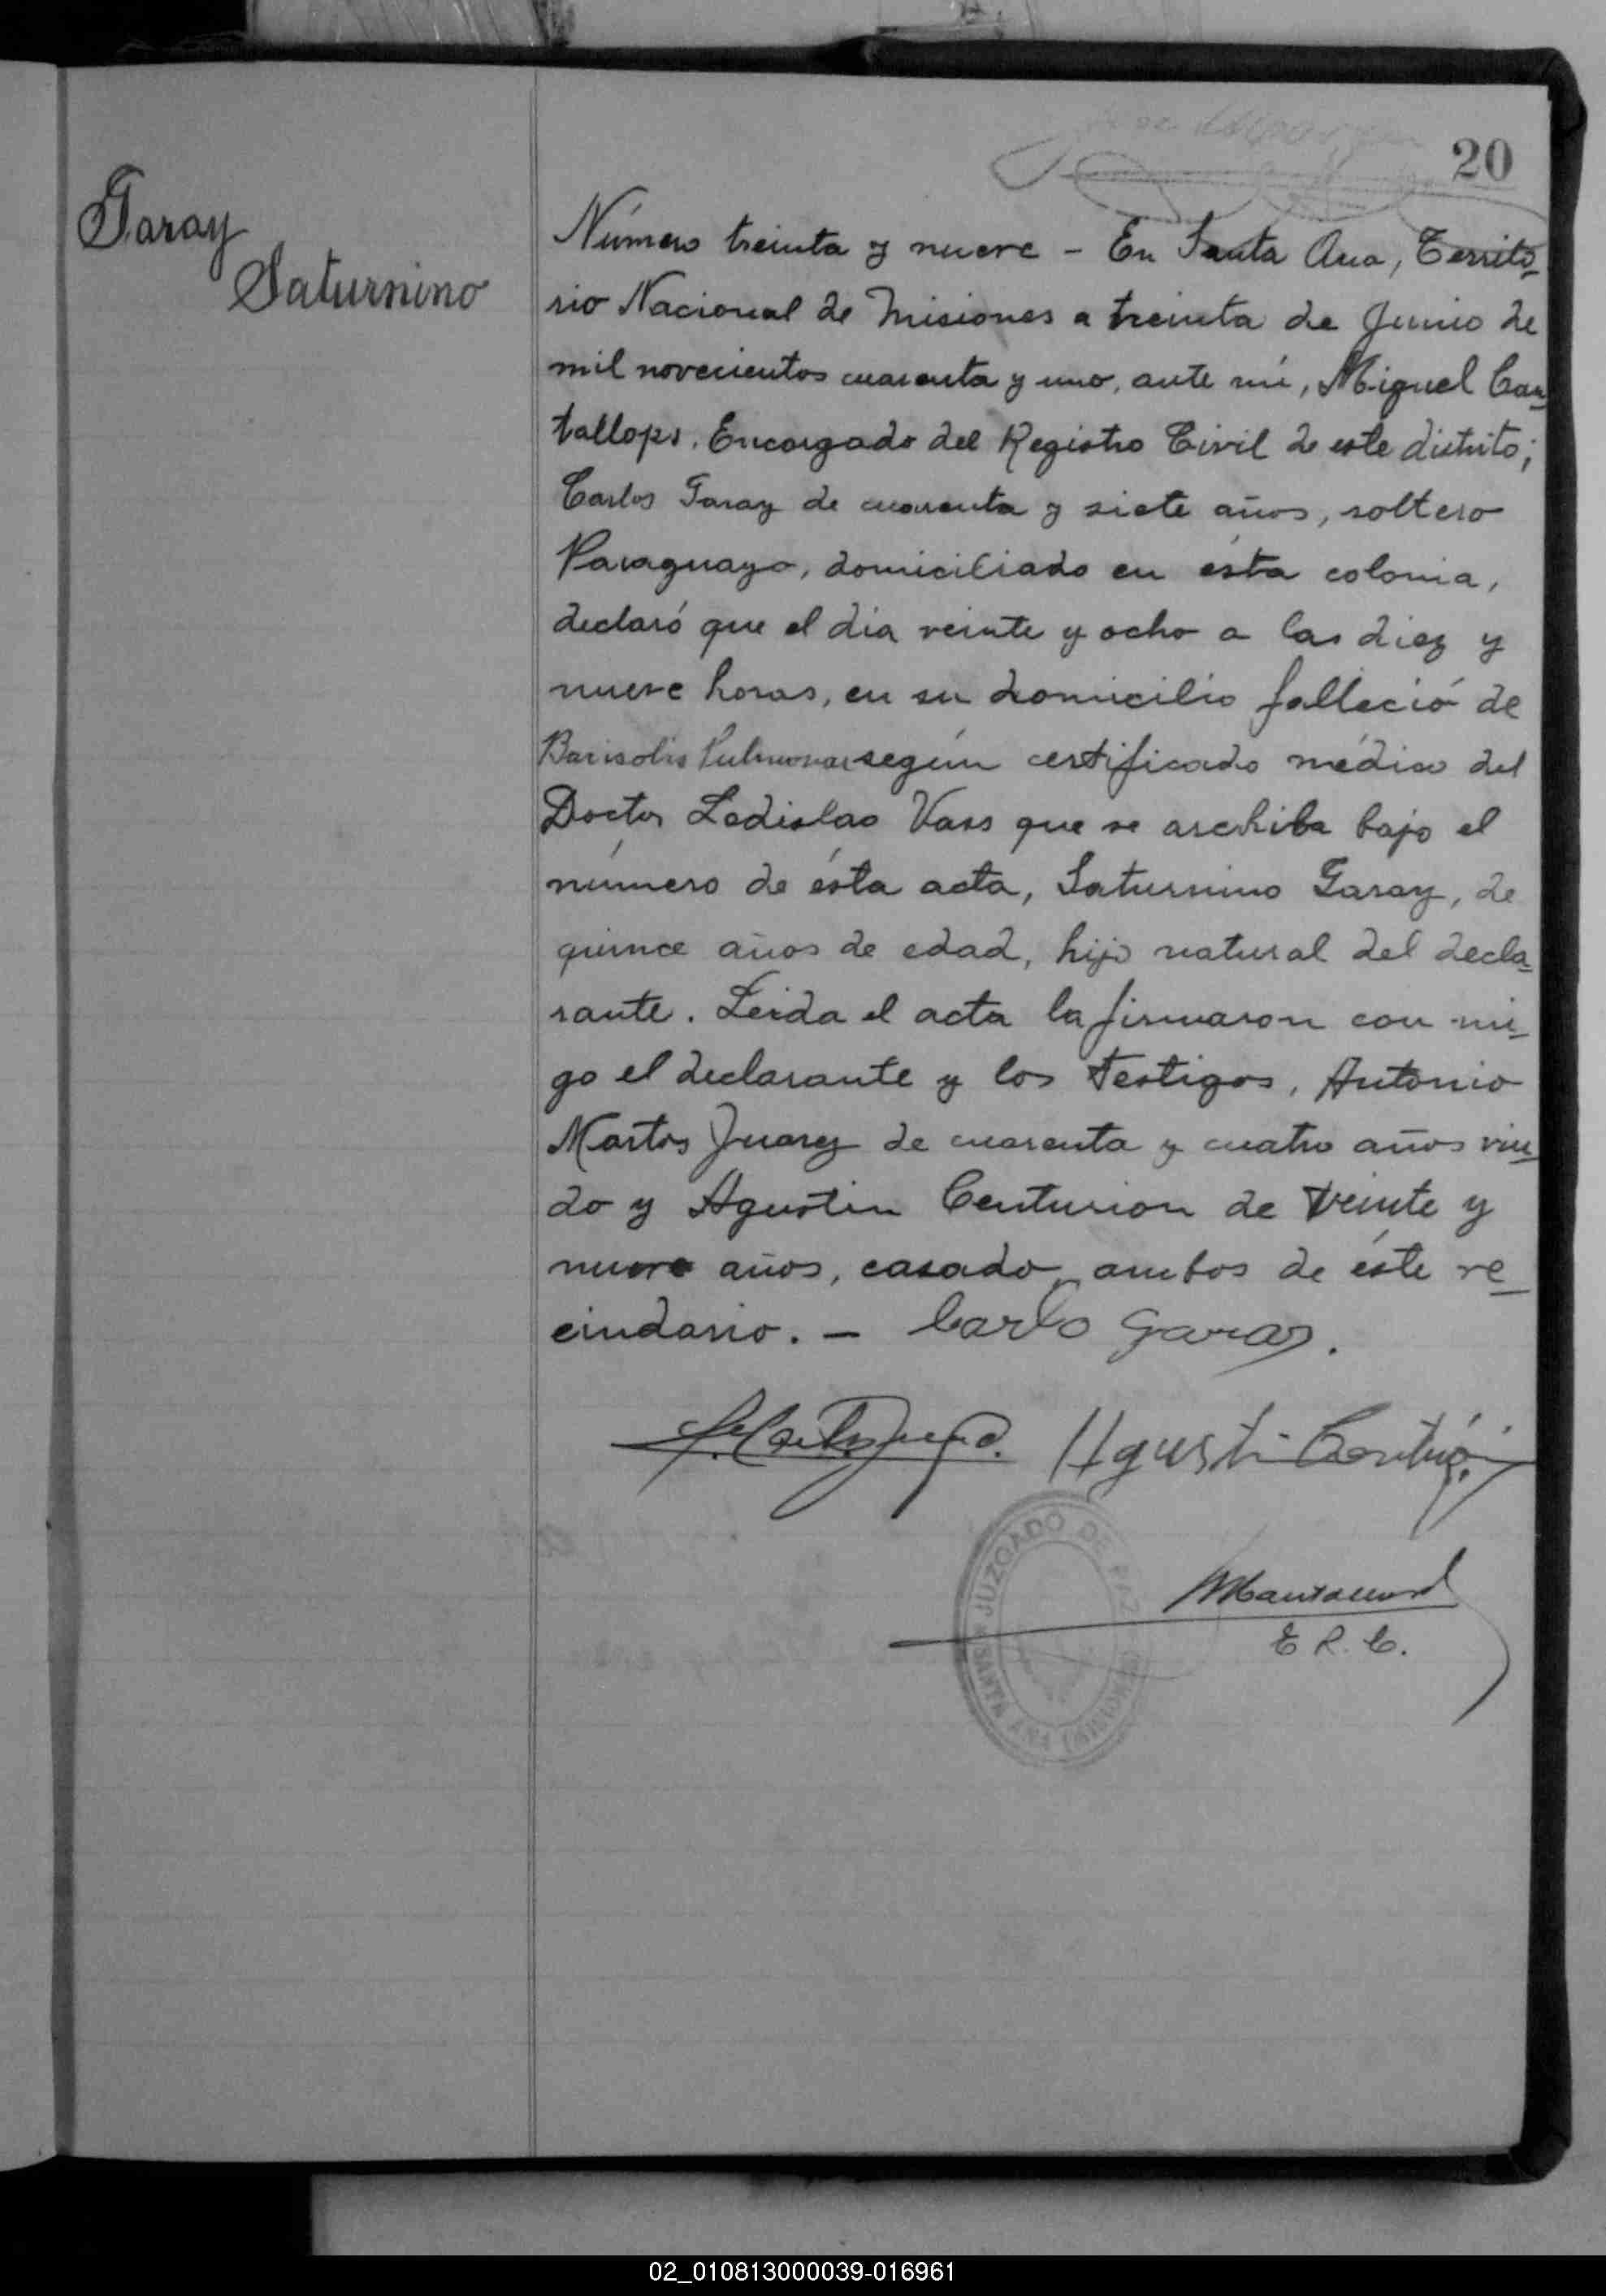 20
Garay
Saturnino
Número treinta y nueve - En Santa Ana, Territo-
rio Nacional de Misiones a treinta de Junio de
mil novecientos cuarenta y uno, ante mí, Miguel Can-
tallops, Encargado del Registro Civil de este distrito;
Carlos Garay de cuarenta y siete años, soltero
Paraguayo, domiciliado en ésta colonia,
declaró que el dia veinte y ocho a las diez y
nueve horas, en su domicilio falleció de
Pulmonar según certificado médico del
Doctor Ladislao Vass que se archiba bajo el
número de ésta acta, Saturnino Garay, de
quince años de edad, hijo natural del decla-
rante. Leida el acta la firmaron con mi-
go el declarante y los testigos, Antonio
Martos Juarez de cuarenta y cuatro años viu-
do y Agustin Centurion de veinte y
nueve años, casado, ambos de éste ve-
cindario. - Carlo Garay.
Agusti
JUZGADO DE PAZ
SANTA ANA (MISIONES)
E R. C.
02_010813000039-016961